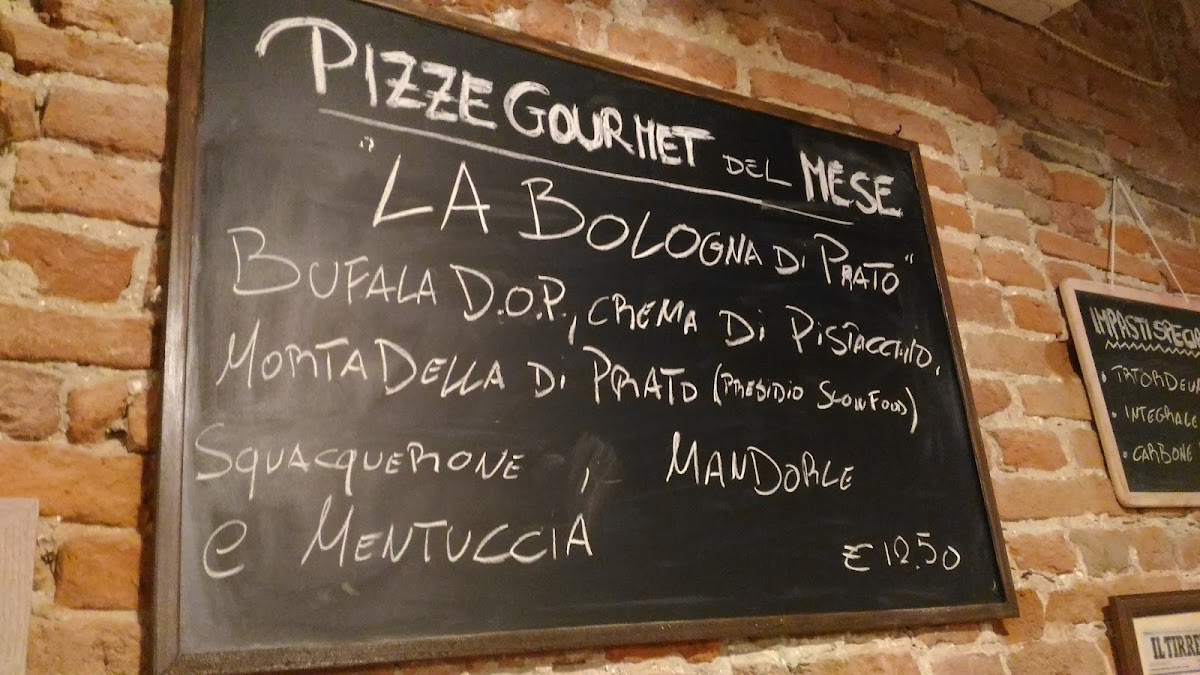 PIZZE GOURMET DEL MESE
"LA BOLOGNA Di PRATO"
BUFALA D.O.P., CREMA Di PiSTACCHIO,
MORTADELLA Di PRATO (PRESIDIO SLOWFOOD)
SQUACQUERONE, MANDORLE
e MENTUCCIA
€ 12.50
IMPASTI SPECIA
• TRTORDEU
• INTEGRALE
• CARBONE
IL TIRRE